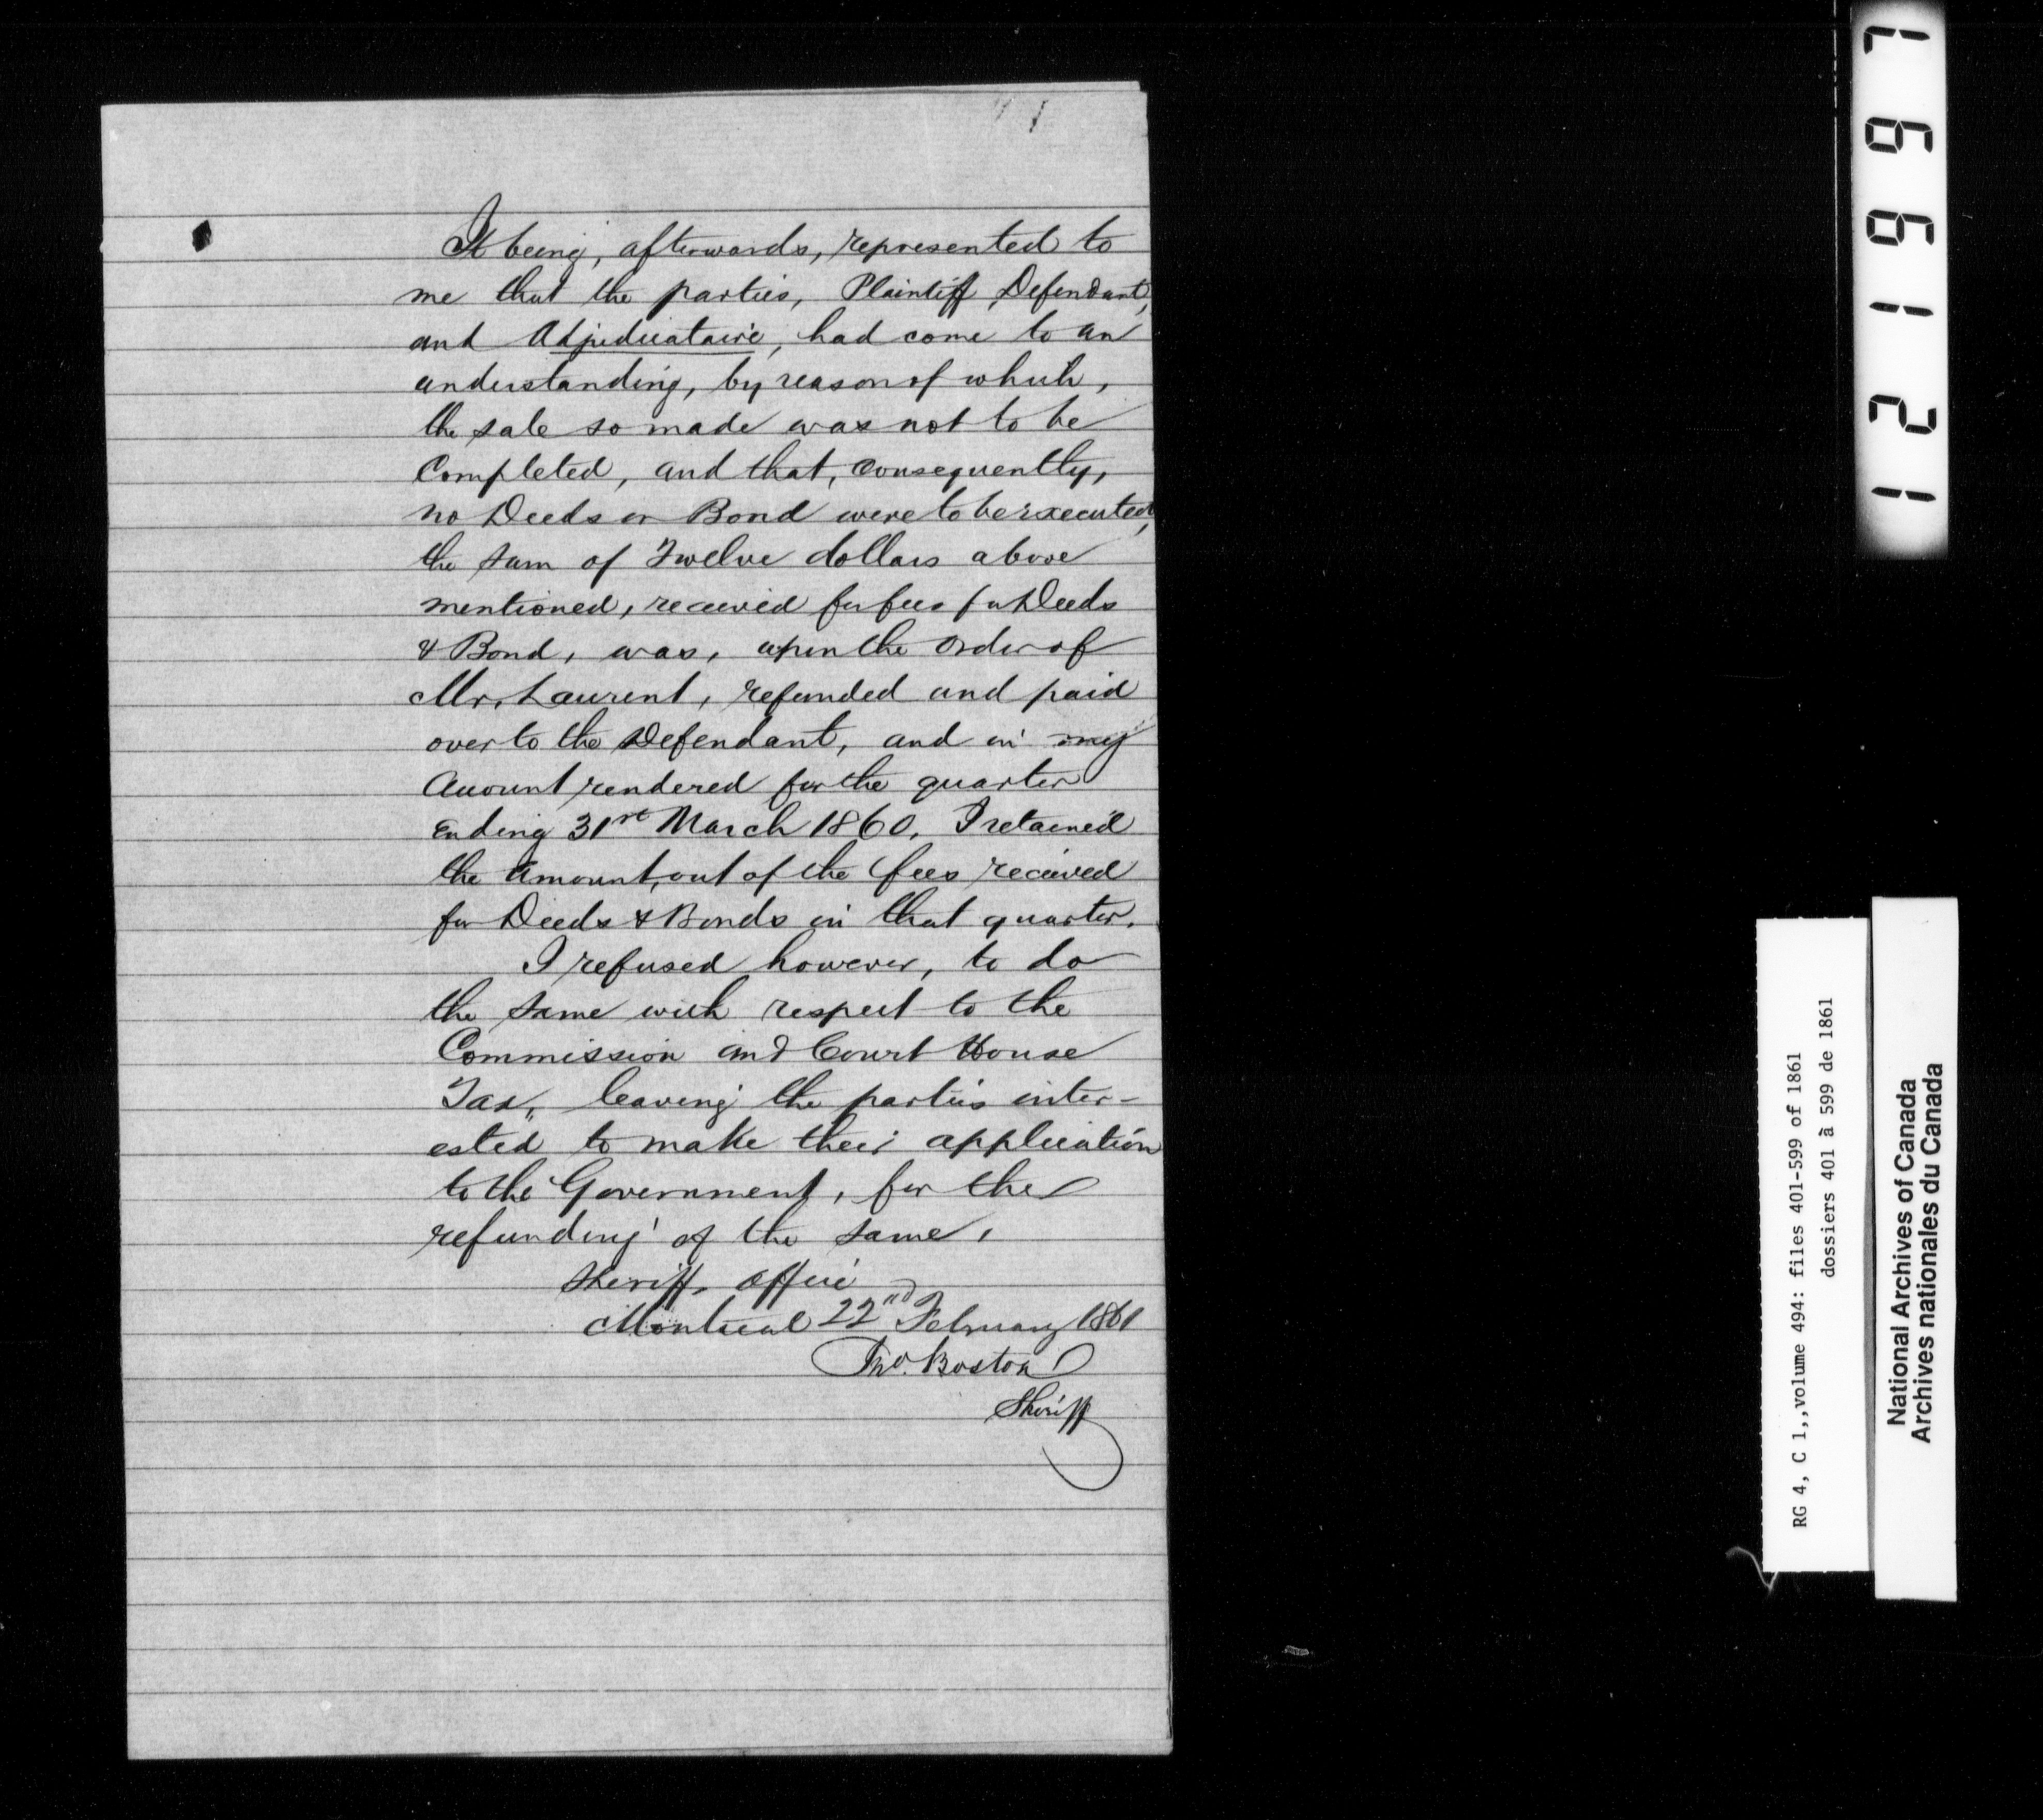 It being, afterwards, represented to
me that the parties, Plaintiff, Defendant,
and Adjudicataire, had come to an
understanding, by reason of which,
the sale so made was not to be
Completed, and that, consequently,
no Deeds or Bond were to be executed,
the sum of Twelve dollars above
mentioned, received for fees for Deeds
& Bond, was, upon the order of
Mr. Laurent, refunded and paid
over to the Defendant, and in my
Account rendered for the quarter
Ending 31st March 1860, I retained
the amount, out of the fees received
for Deeds & Bonds in that quarter.
I refused however, to do
the same with respect to the
Commission and Court House
Tax, leaving the parties inter-
ested to make their application
to the Government, for the
refunding of the same,
Sheriff's Office
Montreal 22nd February 1861
Jno. Boston
Sheriff
121667
RG 4, C 1,,volume 494: files 401-599 of 1861
dossiers 401 à 599 de 1861
National Archives of Canada
Archives nationales du Canada